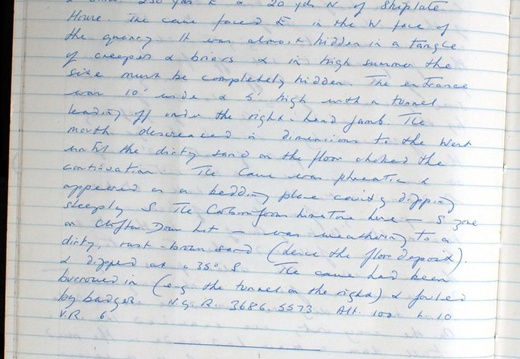 & about 250 yds E & 20 yds N of Shiplate
House. The cave faced E in the W face of
the quarry. It was almost hidden in a tangle
of creepers & briars & in high summer the
site must be completely hidden. The entrance
was 10' wide & 5' high with a tunnel
leading off under the right-hand jamb. The
mouth descreased in dimensions to the West
until the dirty sand on the floor choked the
continuation. The Cave was phreatic &
appeared as a bedding plane cavity dipping
steeply S. The Carboniferous limestone here - S zone
or Clifton Down Lst - was weathering to a
dirty, rust-brown sand (hence the floor deposit).
& dipped at 35° S. The cave had been
burrowed in (e.g. the tunnel on the right) & fouled
by badger. N.G.R. 3686.5573. Alt. 100. L 10
V.R. 6